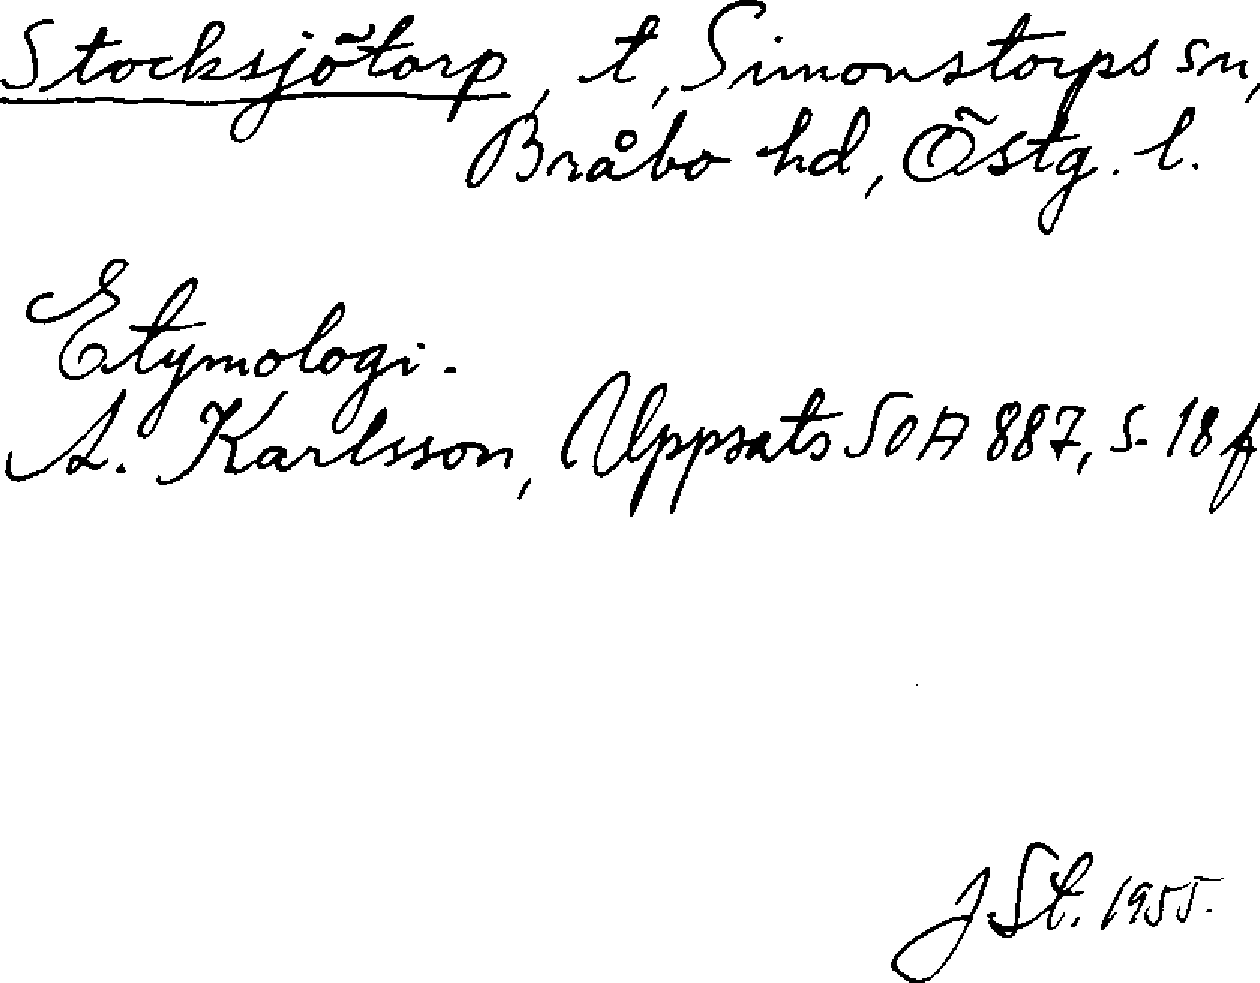 Stocksjötorp, t, Simonstorps sn,
Bråbo hd, Östg. l.
Etymologi.
A. Karlsson, Uppsats SOA 887, s. 18 f
J St. 1955.